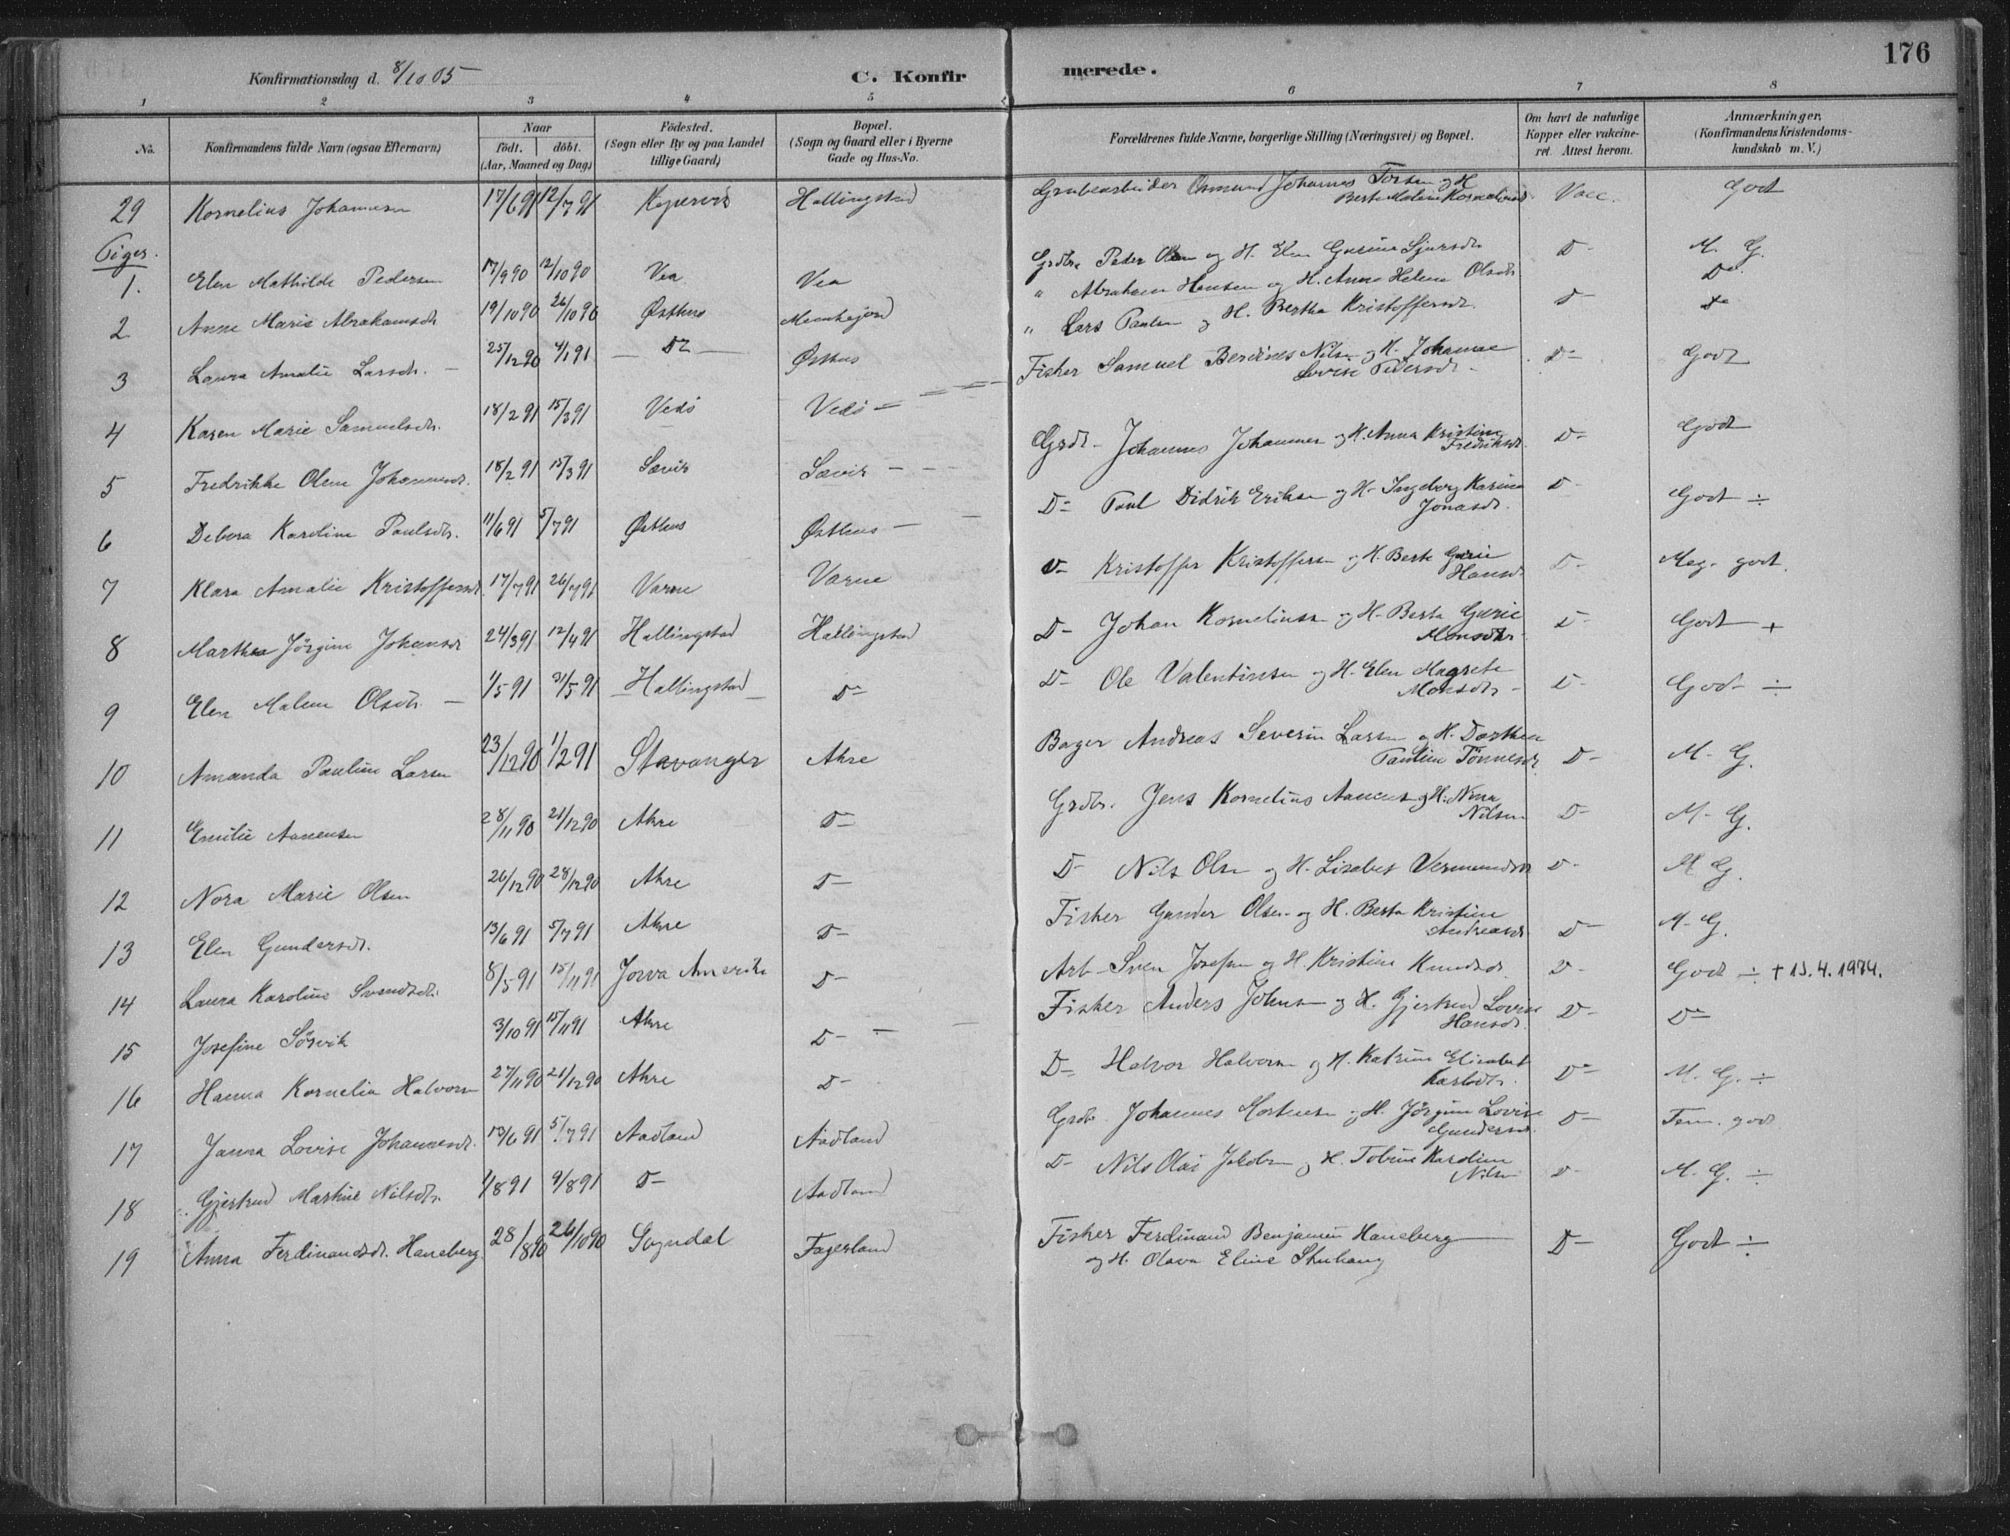 176
Konfirmationsdag d. 8/10 05
C. Konfirmerede.
1 2 3 4 5 6 7 8
No. Konfirmandens fulde Navn (ogsaa Efternavn) Naar født. døbt. (Aar, Maaned og Dag) Fødested. (Sogn eller By og paa Landet tillige Gaard) Bopæl. (Sogn og Gaard eller i Byerne Gade og Hus-No. Forældrenes fulde Navne, borgerlige Stilling (Næringsvei) og Bopæl. Om havt de naturlige Kopper eller vakcineret. Attest herom. Anmærkninger. (Konfirmandens Kristendomskundskab m. V.)
29 Kornelius Johannesen 17/6 91 12/7 91 Kopervik Hallingstad Grubearbeider Osmund Johannes Torsen og H. Berte Malene Korneliusd. Vacc. Godt
Piger.
1. Elen Mathilde Pedersen 17/9 90 12/10 90 Vea Vea Grdbr. Peder Olsen og H. Elen Gurine Sjursdr. D- M. G.
2 Anne Marie Abrahamsdr. 19/10 90 26/10 90 Østhus " Abraham Hansen og H. Anne Helene Olsdr. Do
3 Laura Amalie Larsdr. 25/12 90 4/1 91 Do Østhus " Lars Paulsen og H. Bertha Kristoffersdr. D- Do
4 Karen Marie Samuelsdr. 18/2 91 15/3 91 Vedø Vedø Fisker Samuel Berdines Nilsen og H. Johanne Lovise Pedersdr. D- Godt
5 Fredrikke Oline Johannesdr. 18/2 91 15/3 91 Sævik Sævik Grdbr. Johannes Johannesen og H. Anna Kristine Fredriksdr. D- Godt
6 Debora Karoline Paulsdr. 11/6 91 5/7 91 Østhus Østhus D- Paul Didrik Eriksen og H. Ingeborg Karina Jonasdr. D- Godt ÷
7 Klara Amalie Kristoffersdr. 17/7 91 26/7 91 Varne Varne D- Kristoffer Kristoffersen og H. Berte Gurie Hansdr. D- Meg. godt.
8 Marthea Jørgine Johansdr. 24/3 91 12/4 91 Hallingstad Hallingstad D- Johan Korneliussen og H. Berta Gurie Monsdtr. D- Godt +
9 Elen Malene Olsdtr. 1/5 91 31/5 91 Hallingstad D- D- Ole Valentinsen og H. Elen Magrete Monsdtr. D- Godt ÷
10 Amanda Pauline Larsen 23/12 90 1/2 91 Stavanger Akre Bager Andreas Severin Larsen og H. Dorthea Pauline Tønnesdr. D- M. G.
11 Emilie Aanensen 28/11 90 21/12 90 Akre D- Grdbr. Jens Kornelius Aanensen og H. Nina Nilsen D- M. G.
12 Nora Marie Olsen 26/12 90 28/12 90 Akre D- D- Nils Olsen og H. Lisabet Vermundsdr. D- M G.
13 Elen Gundersdr. 13/6 91 5/7 91 Akre D- Fisker Gunder Olsen og H. Berta Kristine Andreasdr. D- M. G.
14 Laura Karoline Svendsdr. 8/5 91 15/11 91 Jowa Amerika D- Arb- Sven Josefsen og H. Kristine Knudsdr. D- Godt ÷ + 13.4.1974.
15 Josefine Sørvik 3/10 91 15/11 91 Akre D- Fisker Anders Johnsen og H. Gjertrud Lovise Hansdr. D- D-
16 Hanna Kornelia Halvorsen 27/11 90 21/12 90 Akre D- D- Halvor Halvorsen og H. Katrine Elisabet D- M. G. ÷
17 Janna Lovise Johannesdr. 13/6 91 5/7 91 Aadland Aadland Grdbr. Johannes Mortensen og H. Jørgine Lovise Gundersdr. D- Tem. godt
18 Gjertrud Martine Nilsdtr. 1/8 91 9/8 91 D- Aadland D- Nils Olai Jakobsen og H. Tobine Karoline Nilsen D- M. G. ÷
19 Anna Ferdinandsdr. Haneberg 28/8 90 26/10 90 Sogndal Fagerland Fisker Ferdinand Benjamin Haneberg og H. Olava Eline D- Godt ÷